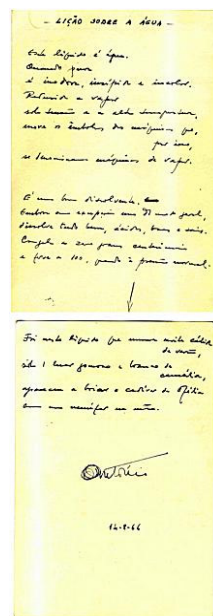 - LIÇÃO SOBRE A ÁGUA -
Este líquido é água.
Quando pura
é inodora, insípida e incolor.
Reduzida a vapor
sob tensão e a alta temperatura,
move os êmbolos das máquinas que,
por isso,
se denominam máquinas de vapor.
É um bom dissolvente.
Embora com excepções mas de um modo geral,
dissolve tudo bem, ácidos, bases e sais.
Congela a zero graus centesimais
e ferve a 100, quando à pressão normal.
Foi neste líquido que numa noite cálida
de verão,
sob o luar gomoso e branco de
camélia,
apareceu a boiar o cadáver de Ofélia
com um nenúfar na mão.
14-8-66